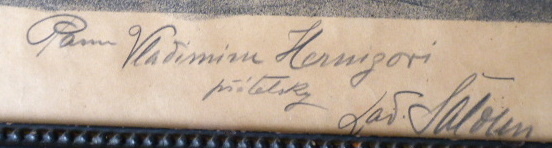 Panu Vladimiru Hernygovi
přátelsky
Lad. Šaloun